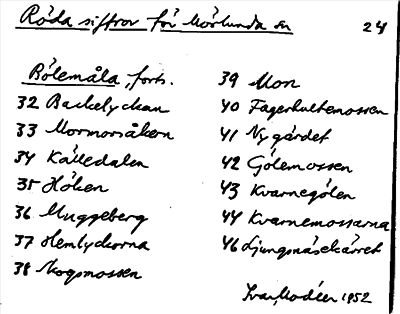 Röda siffror för Mörlunda sn
24
Bölemåla, forts.
32 Backelyckan
33 Mormorsåkern
34 Källedalen
35 Höken
36 Muggeberg
37 Hemlyckorna
38 Skogsmossen
39 Mon
40 Fagerhultemossen
41 Nygärdet
42 Gölemossen
43 Kvarnegölen
44 Kvarnemossarna
46 Ljungnäsekärret
Ivar Modéer 1952